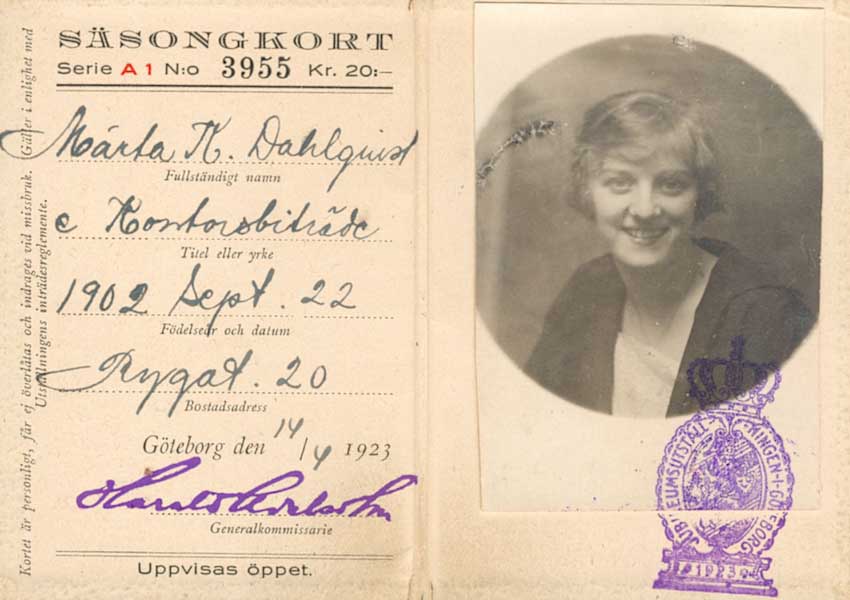 SÄSONGKORT
Serie A 1 N:o 3955 Kr. 20:—
Märta K. Dahlquist
Fullständigt namn
Kontorsbiträde
Titel eller yrke
1902 Sept. 22
Födelseår och datum
Rygat. 20
Bostadsadress
Göteborg den 14/4 1923
Generalkommissarie
Uppvisas öppet.
Kortet är personligt, får ej överlåtas och indrages vid missbruk. (Gäller i enlighet med
Utställningens inträdesreglemente.
JUBILEUMSUTSTÄLLNINGEN·I·GÖTEBORG
1923